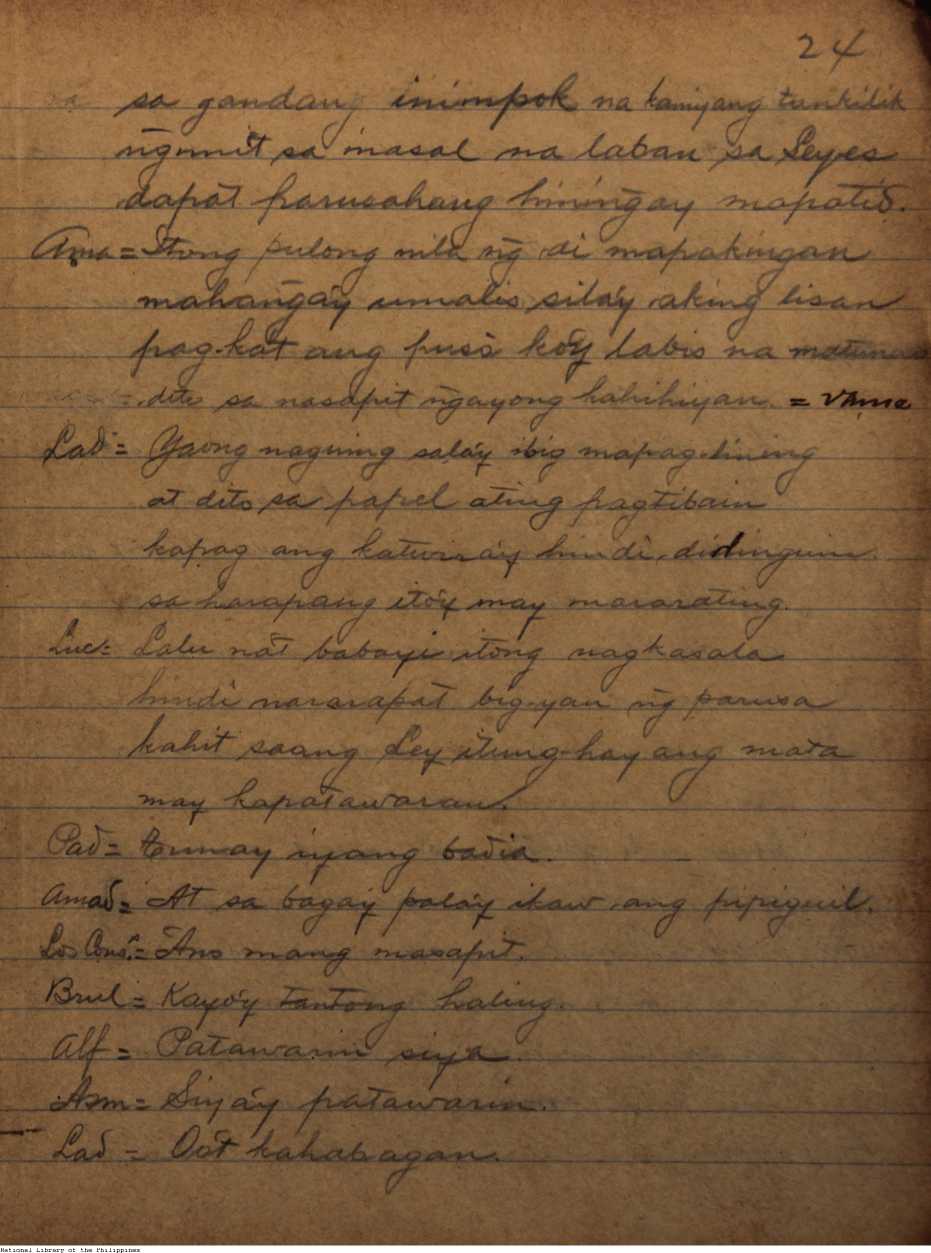 24
sa gandang inimpok na kaniyang tankilik
ng̃unit sa inasal na laban sa Leyes
dapat parusahang hining̃ay mapatid.
Ama = Itong pulong nila ng̃ di mapakingan
mahang̃ay umalis, sila'y aking lisan
pag-kat ang puso ko'y labis na
dito sa nasapit ng̃ayong kahihiyan. = Váme
Lad = Yaong naguing sala'y ibig mapag-lining
at dito sa papel ating pagtibain
kapag ang katwira'y hindi didinguin.
sa harapang ito'y may mararating.
Luc = Lalu na't babayi itong nagkasala
hindi nararapat big-yan ng̃ parusa
kahit saang Ley itung-hay ang mata
may kapatawaran.
Pad = tunay iyang badia.
Amad = At sa bagay pala'y ikaw ang pipiguil.
Los Cons. = Ano mang masapit.
Brul = Kayo'y tantong haling.
Alf = Patawarin siya.
Asm = Siya'y patawarin.
Lad = Oo't kahabagan.
National Library of the Philippines